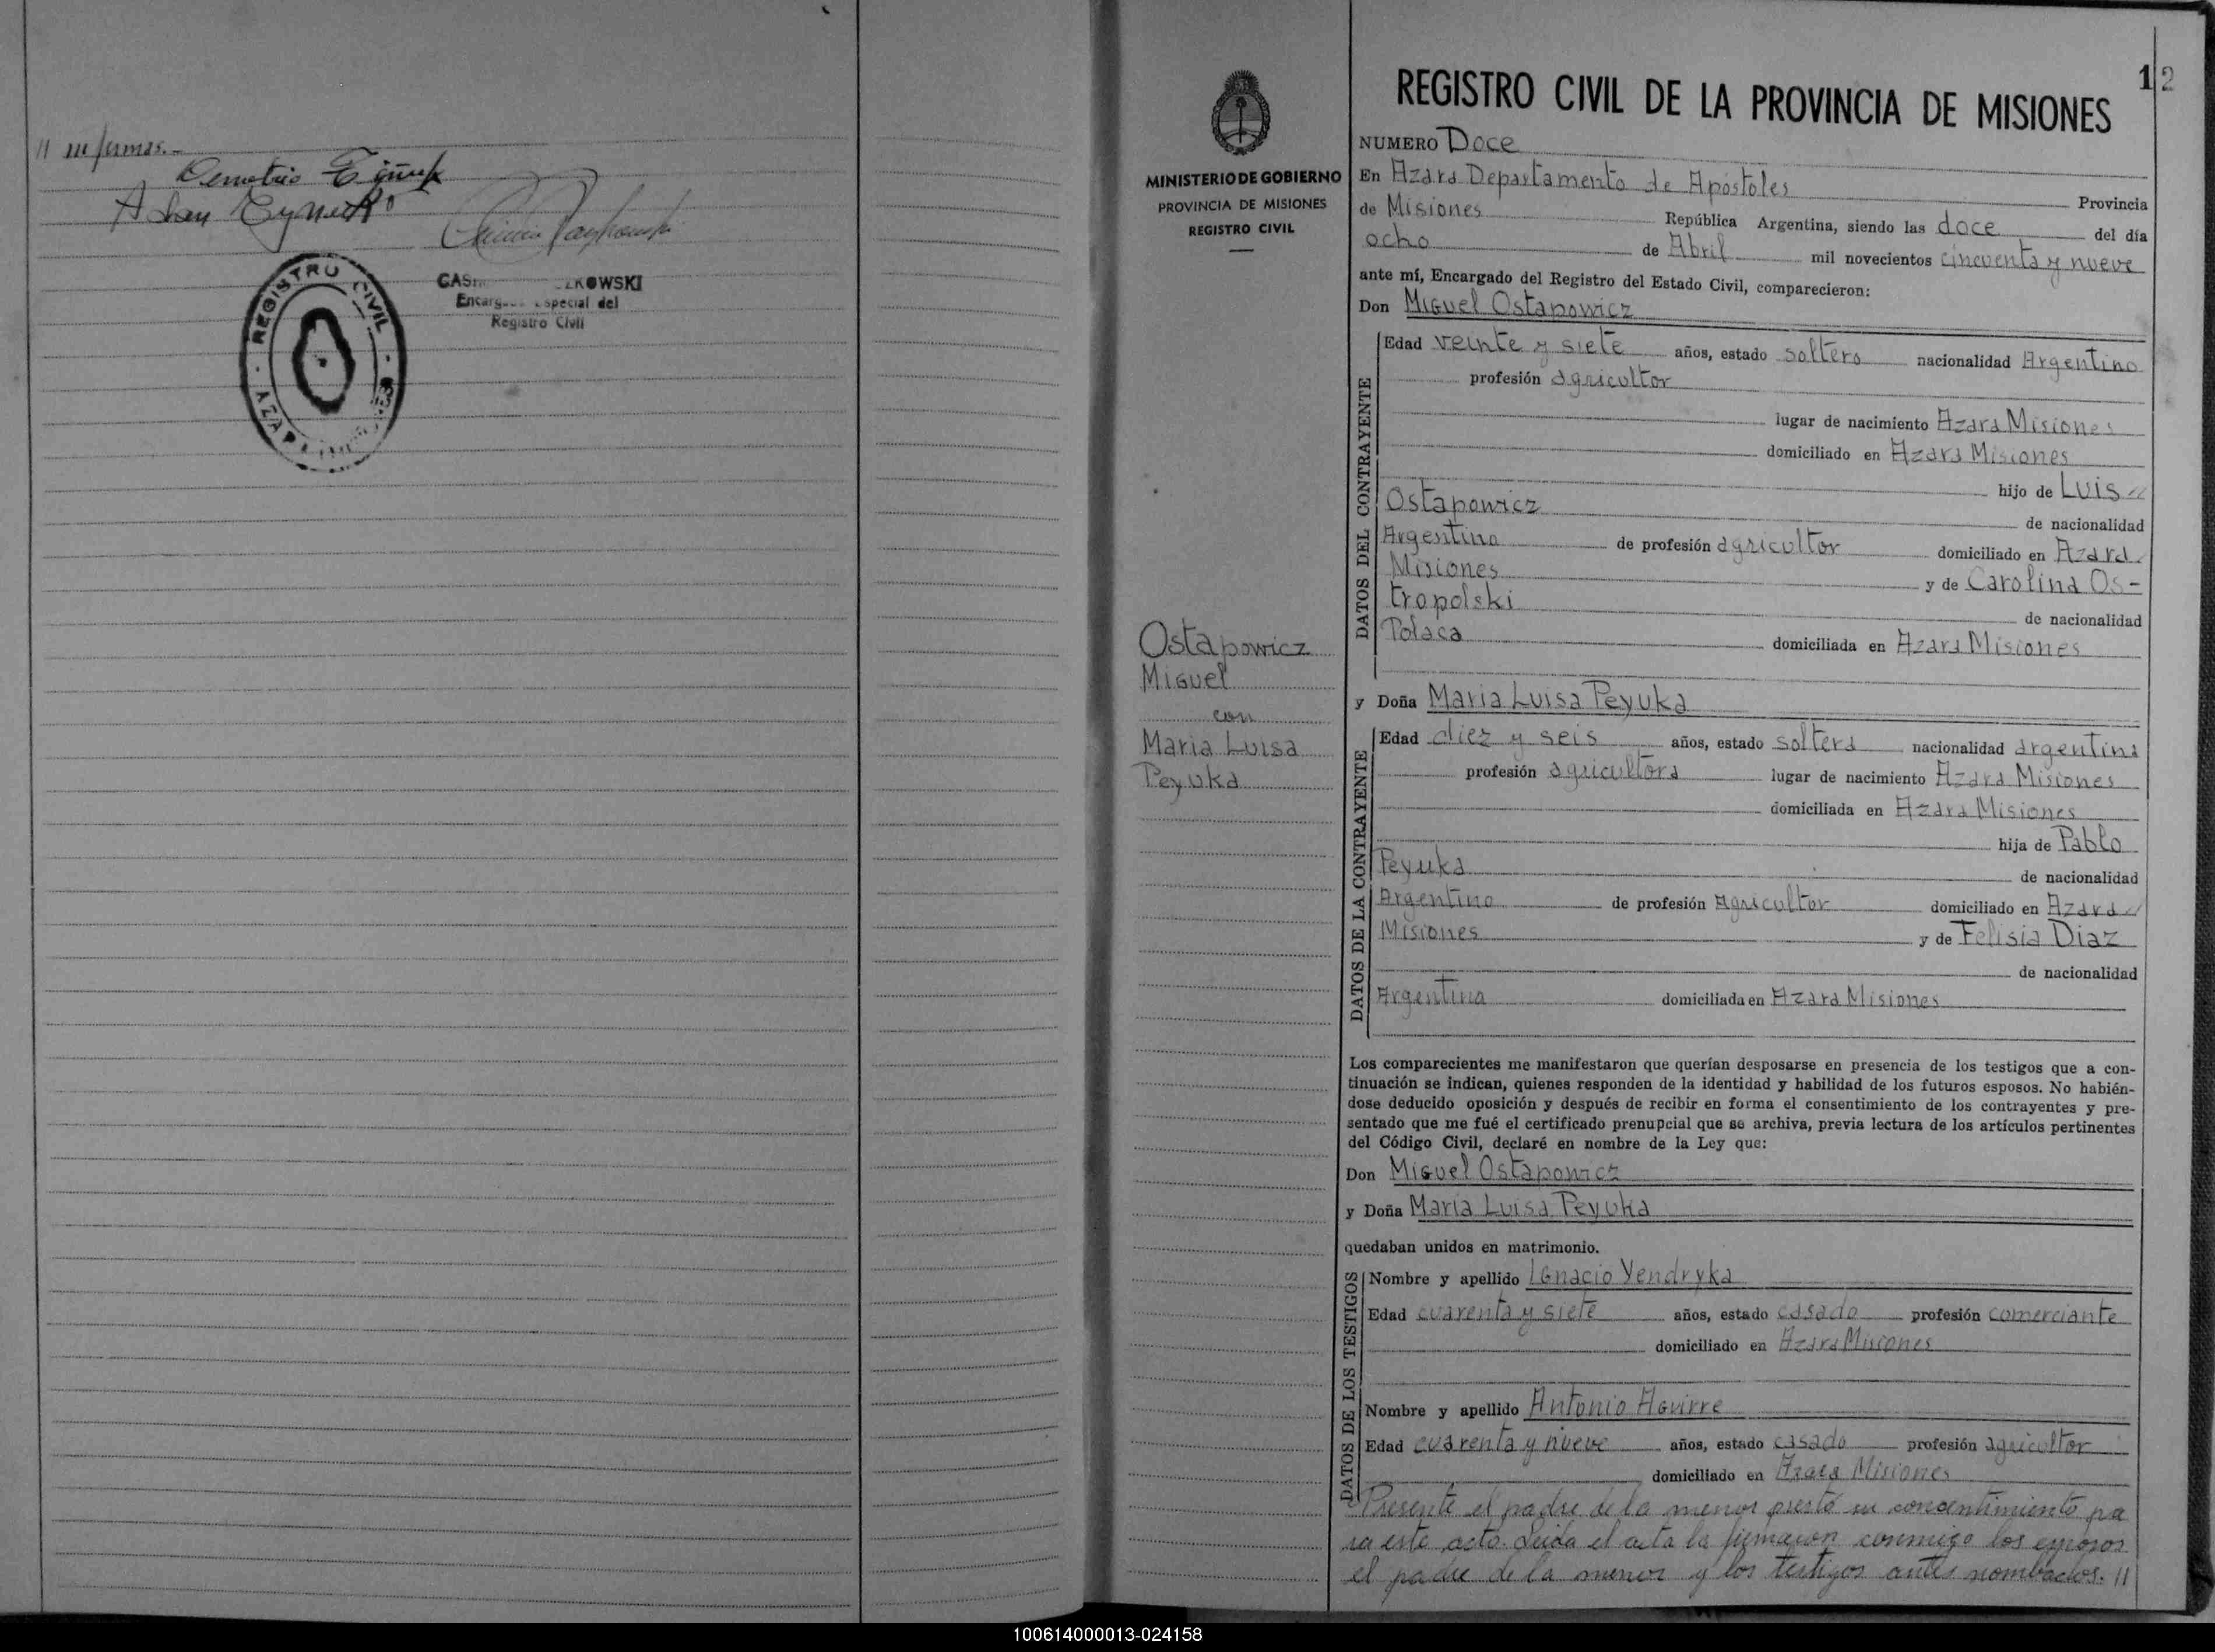 // su firmas.-
Demetrio
Adan
REGISTRO CIVIL
AZARA
CAS KOWSKI
Encarg special del
Registro Civil
12
REGISTRO CIVIL DE LA PROVINCIA DE MISIONES
MINISTERIO DE GOBIERNO
PROVINCIA DE MISIONES
REGISTRO CIVIL
Ostapowicz
Miguel
con
Maria Luisa
Peyuka
NUMERO Doce
En Azara Departamento de Apóstoles Provincia
de Misiones República Argentina, siendo las doce del día
ocho de Abril mil novecientos cincuenta y nueve
ante mí, Encargado del Registro del Estado Civil, comparecieron:
Don Miguel Ostapowicz
DATOS DEL CONTRAYENTE
Edad veinte y siete años, estado soltero nacionalidad Argentino
profesión agricultor
lugar de nacimiento Azara Misiones
domiciliado en Azara Misiones
hijo de Luis //
Ostapowicz de nacionalidad
Argentino de profesión agricultor domiciliado en Azara
Misiones y de Carolina Os-
tropolski de nacionalidad
Polaca domiciliada en Azara Misiones
y Doña Maria Luisa Peyuka
DATOS DE LA CONTRAYENTE
Edad diez y seis años, estado soltera nacionalidad argentina
profesión agricultora lugar de nacimiento Azara Misiones
domiciliada en Azara Misiones
hija de Pablo
Peyuka de nacionalidad
Argentino de profesión Agricultor domiciliado en Azara //
Misiones y de Felisia Diaz
de nacionalidad
Argentina domiciliada en Azara Misiones
Los comparecientes me manifestaron que querían desposarse en presencia de los testigos que a con-
tinuación se indican, quienes responden de la identidad y habilidad de los futuros esposos. No habién-
dose deducido oposición y después de recibir en forma el consentimiento de los contrayentes y pre-
sentado que me fué el certificado prenupcial que se archiva, previa lectura de los artículos pertinentes
del Código Civil, declaré en nombre de la Ley que:
Don Miguel Ostapowicz
y Doña Maria Luisa Peyuka
quedaban unidos en matrimonio.
DATOS DE LOS TESTIGOS
Nombre y apellido Ignacio Yendryka
Edad cuarenta y siete años, estado casado profesión comerciante
domiciliado en Azara Misiones
Nombre y apellido Antonio Aguirre
Edad cuarenta y nueve años, estado casado profesión agricultor
domiciliado en Azara Misiones
Presente el padre de la menor prestó su concentimiento pa
ra este acto. Leída el acta la firmaron conmigo los esposos
el padre de la menor y los testigos antes nombrados. //
100614000013-024158